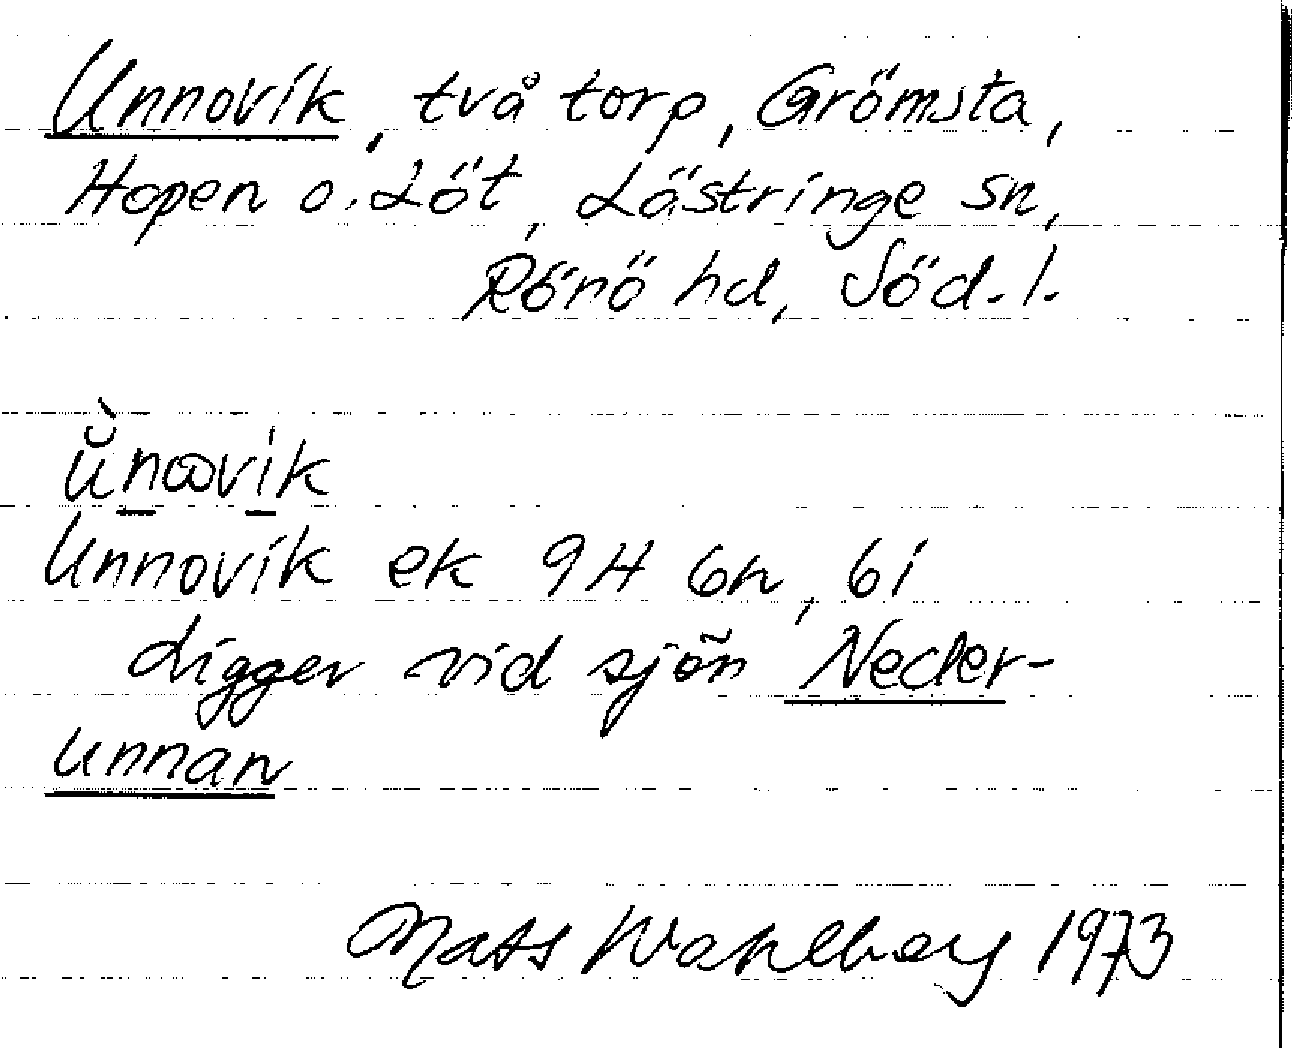 Unnovik, två torp, Grömsta,
Hopen o. Löt, Lästringe sn,
Rönö hd, Söd. l.
ŭ̀nꝏvik
Unnovik ek 9H 6h, 6i
Ligger vid sjön Neder-
unnan
Mats Wahlberg 1973